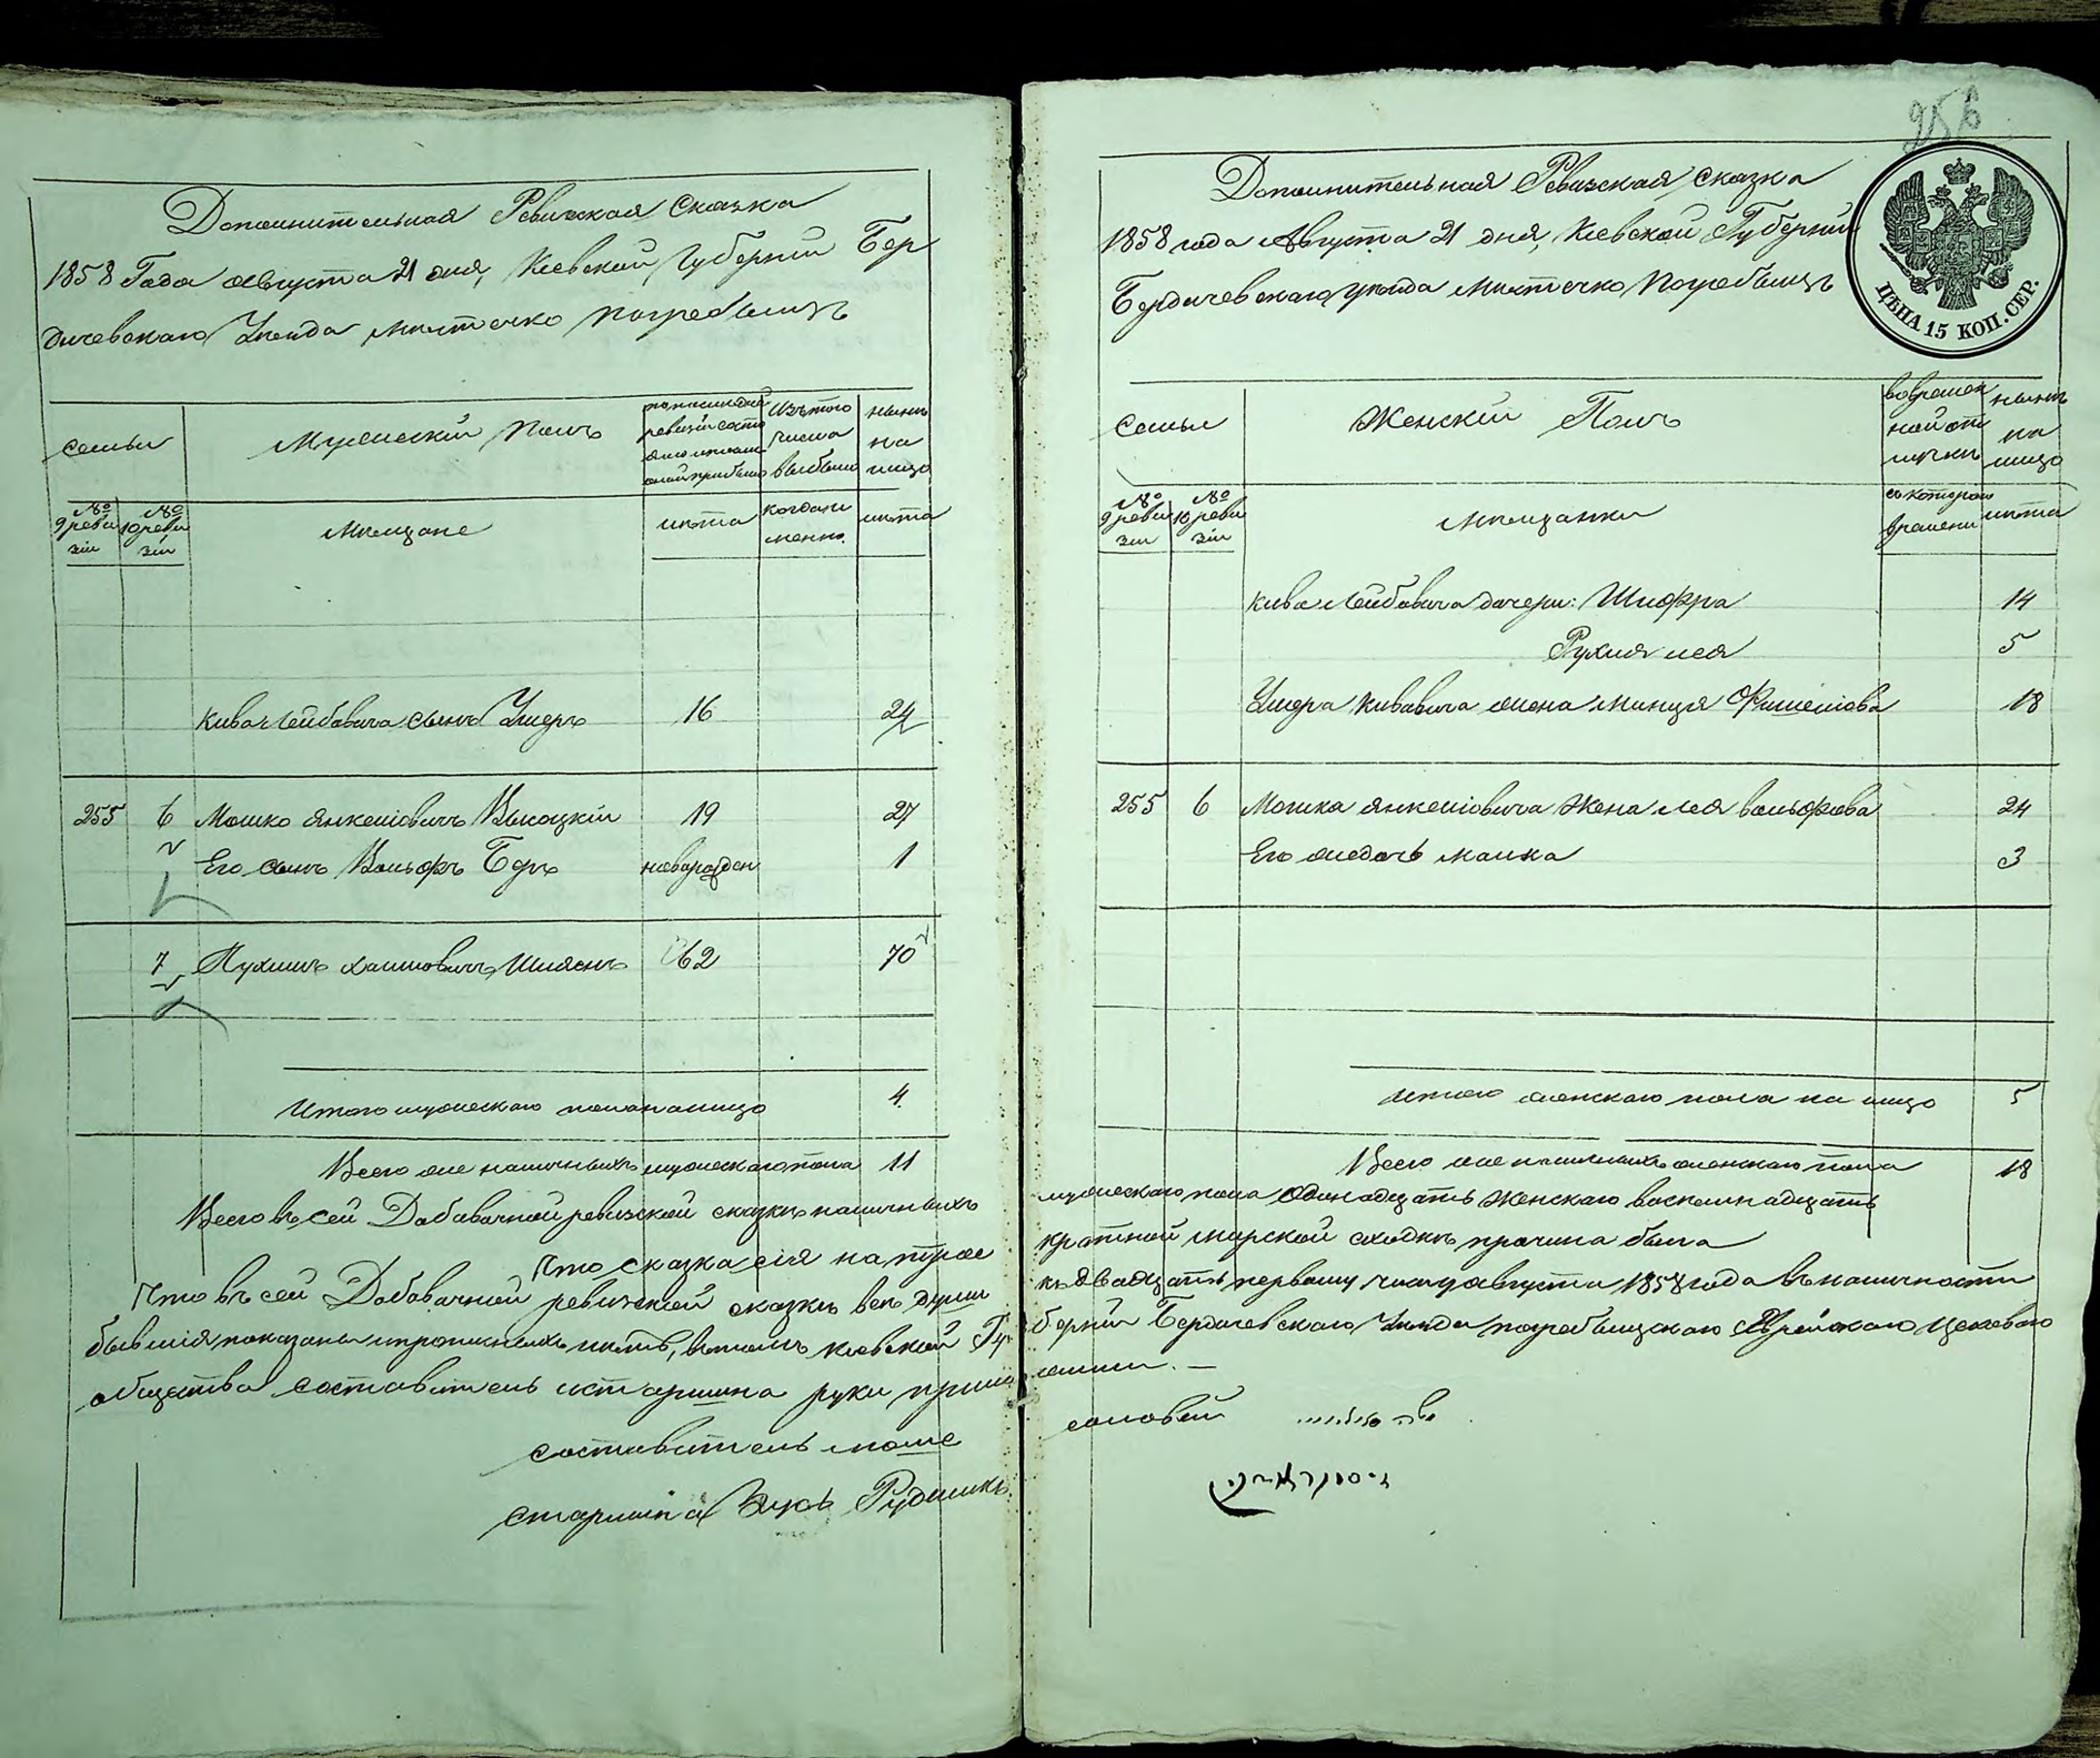 Дополнительная Ревизская Сказка
1858 Года августа 21 дня, Киевской Губернии Бер
дичевскаго Уезда местечко Погребищъ
семьи
Мужескій Полъ
изъ того
числа
выбыло
нынѣ
на
лицо
№
9 реви
зіи
№
10 реви
зіи
Мѣщане
лѣта
когда и
менно.
лѣта
Кива Лейбовича сынъ Умеръ 16 24
255 6 Мошко Янкеліовичъ Высоцкій 19 27
Его сынъ Вольфъ Беръ новорожден 1
7 Хаимовичъ 62 70
Итого мужескаго пола на лицо 4.
Всего же наличныхъ мужескаго пола 11
Всего въ сей Добавочной ревизской сказкѣ наличныхъ
Что сказка сія на трое
Что въ сей Добавочной ревизской сказкѣ всѣ души
бывшія показаны и пропискныхъ нѣтъ, въ томъ Кіевской Гу
общества составитель и старшина руки прило
составитель моше
старшина Рудникъ
256
Дополнительная Ревизская Сказка
1858 года Августа 21 дня, Кіевской Губерніи
Бердичевскаго уѣзда мѣстечко Погребищъ
ЦѢНА 15 КОП. СЕР.
Семьи
Женскій Полъ
во времен
ной от
лучкѣ
нынѣ
на
лицо
№
9 реви
зіи
№
10 реви
зіи
Мѣщанки
съ котораго
времени
лѣта
Кива Лейбовича дочери: Шифра 14
Рухля лея 5
Умера Кивовича жена Минця Фишеліова 18
255 6 Мошка Янкеліовича Жена Лея Вольфова 24
Его же дочь малка 3
Итого женскаго пола на лицо 5
Всего же наличныхъ женскаго пола 18
мужескаго пола Одинадцать Женскаго восемнадцать
кратной мирской сходкѣ прочина была
къ двадцать первому числу августа 1858 года въ наличности
берніи Бердичевскаго Уѣзда погребищскаго Еврейскаго цеховаго
жили. —
соловей